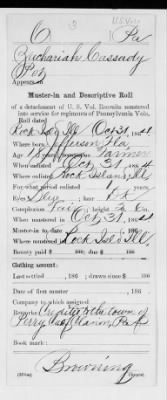 C Pa
U.S. Vols
Zachariah Cassady
Pvt
Appears on
Muster-in and Descriptive Roll
of a detachment of U. S. Vol. Recruits mustered
into service for regiments of Pennsylvania Vols,
Roll dated
Rock Isld Ill Oct 31, 1864
Where born Jefferson Fla
Age 18 y'rs; occupation Farmer
When enlisted Oct 1864
Where enlisted Rock Island Ill
For what period enlisted 1 years
Eyes Blue ; hair
Complexion ; height ft. in.
When mustered in Oct 31, 1864
Muster-in to date 186
Where mustered in Rock Isld Ill
Bounty paid $ 100; due $ 100
Clothing account:
Last settled , 186 ; drawn since $ 100
Date of first muster , 186
Company to which assigned
Remarks: Credited to the town of
Perry Pa
Book mark:
Browning
Copyist.